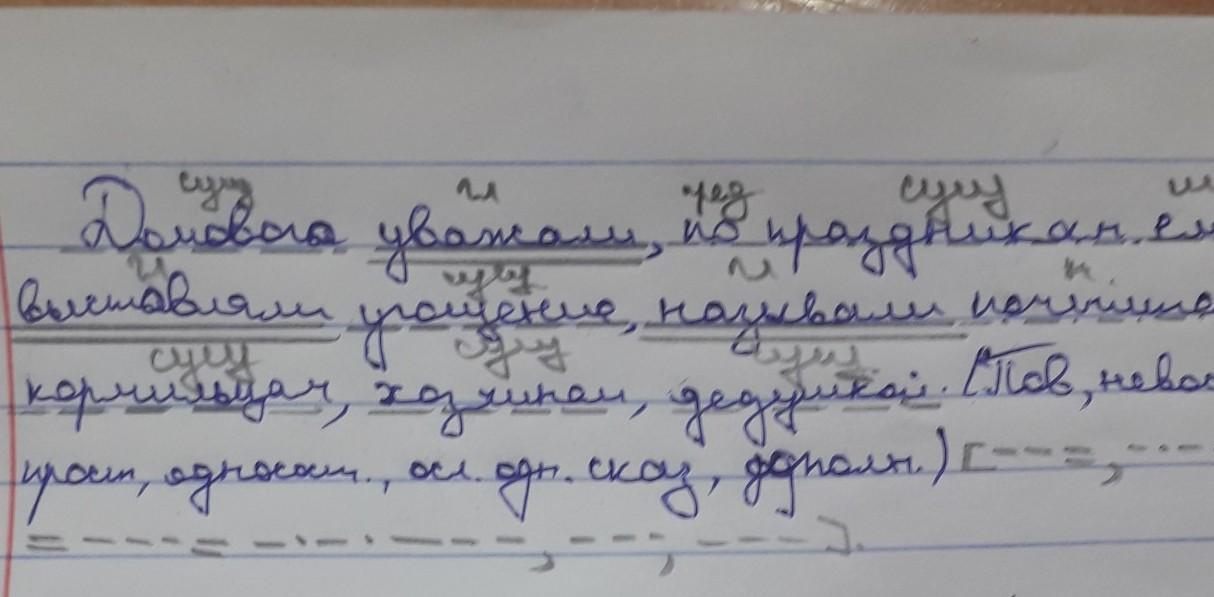 сущ г предл сущ м
Домового уважали, по праздникам ем
г сущ г н.
выставляли угощение, называли почтите
сущ сущ сущ
кормильцам, хозяином, дедушкой. (Пов, невос
прост, односост., осл. одн. сказ, дополн.) [--- =, -·-·
= --- = -·-·- ---, ---, ---].